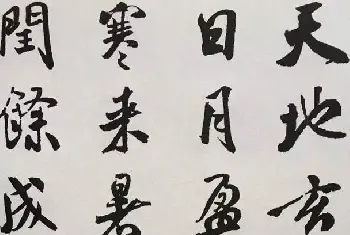 天地玄
日月盈
寒来暑
閏餘成